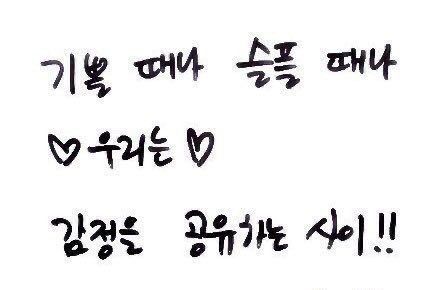 기쁠 때나 슬플 때나
♡우리는♡
감정을 공유하는 사이!!